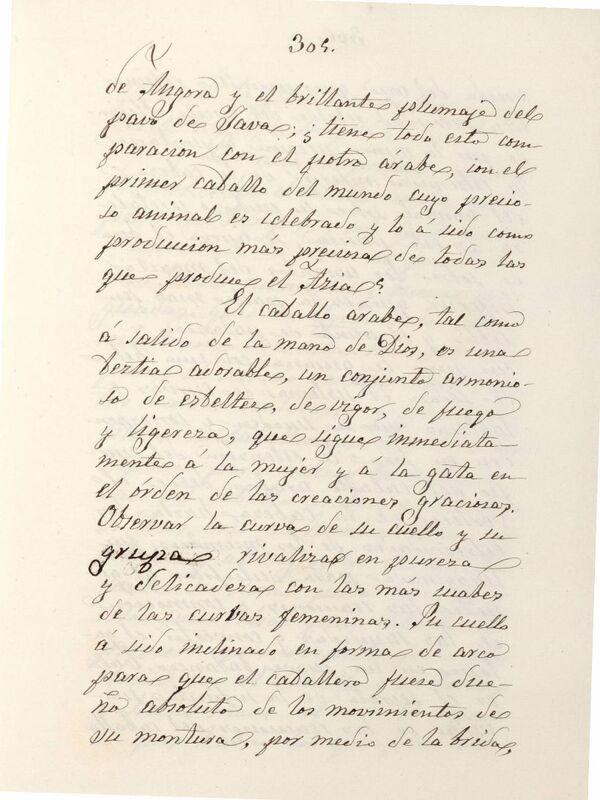 305.
de Angora y el brillante plumaje del
pavo de Java; ¿tiene todo esto com
paracion con el potro árabe, con el
primer caballo del mundo cuyo precio-
so animal es celebrado y lo á sido como
produccion mas preciosa de todas las
que produce el Azia?
El caballo árabe, tal como
á salido de la mano de Dios, es una
bestia adorable, un conjunto armonio-
so de esbeltez, de vigor, de fuego
y ligereza, que sigue inmediata-
mente á la mujer y á la gata en
el órden de las creaciones graciosas.
Observar la curva de su cuello y su
grupa rivalizar en pureza
y delicadeza con las más suabes
de las curbas femeninas. Su cuello
á sido inclinado en forma de arco
para que el caballero fuese due-
ño absoluto de los movimientos de
su montura, por medio de la brida,